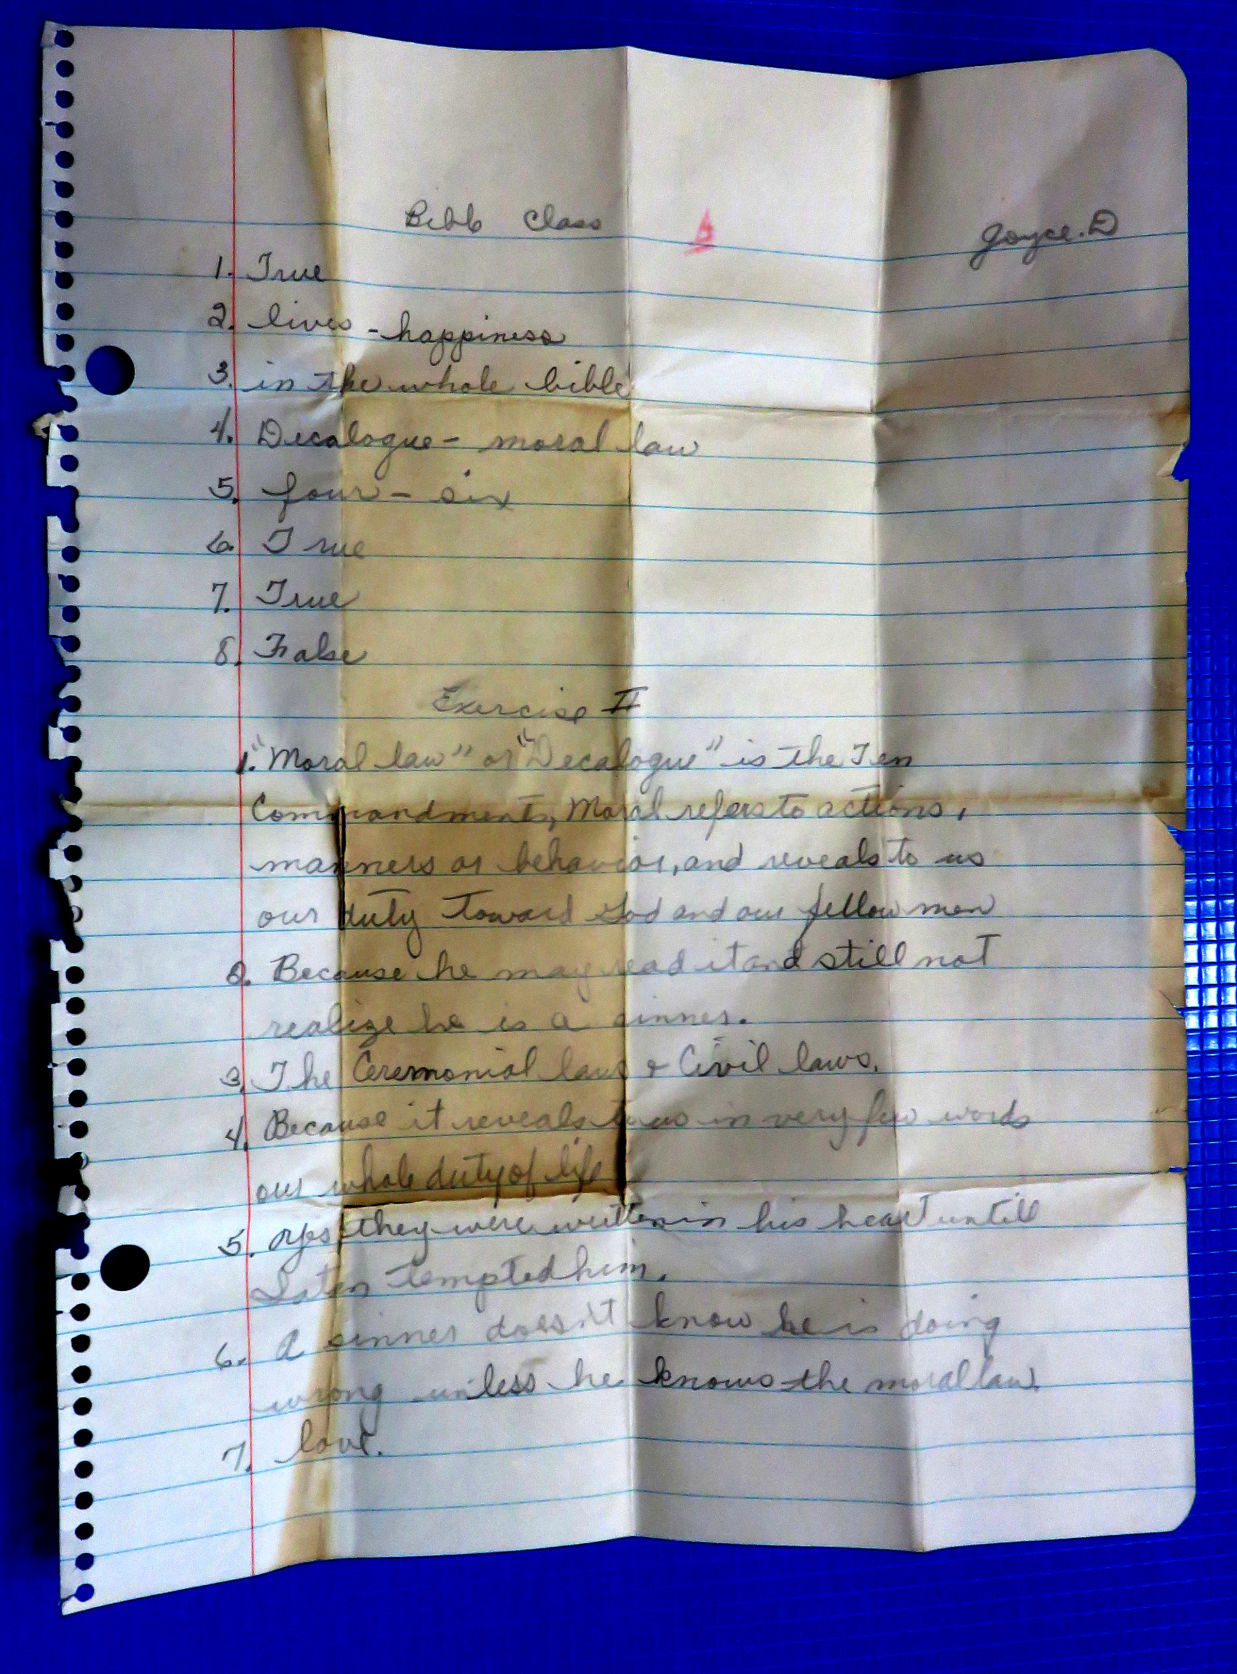 Bible Class A Joyce. D
1. True
2. lives - happiness
3. in the whole bible
4. Decalogue - moral law
5. four - six
6. True
7. True
8. False
Exercise II
1. "Moral law" or "Decalogue" is the Ten
Commandments, Moral refers to actions,
manners or behavior, and reveals to us
our duty toward God and our fellow men
2. Because he may read it and still not
realize he is a sinner.
3. The Ceremonial laws & Civil laws.
4. Because it reveals to us in very few words
our whole duty of life
5. Yes, they were written in his heart until
Satan tempted him.
6. A sinner doesn't know he is doing
wrong unless he knows the moral law.
7. love.